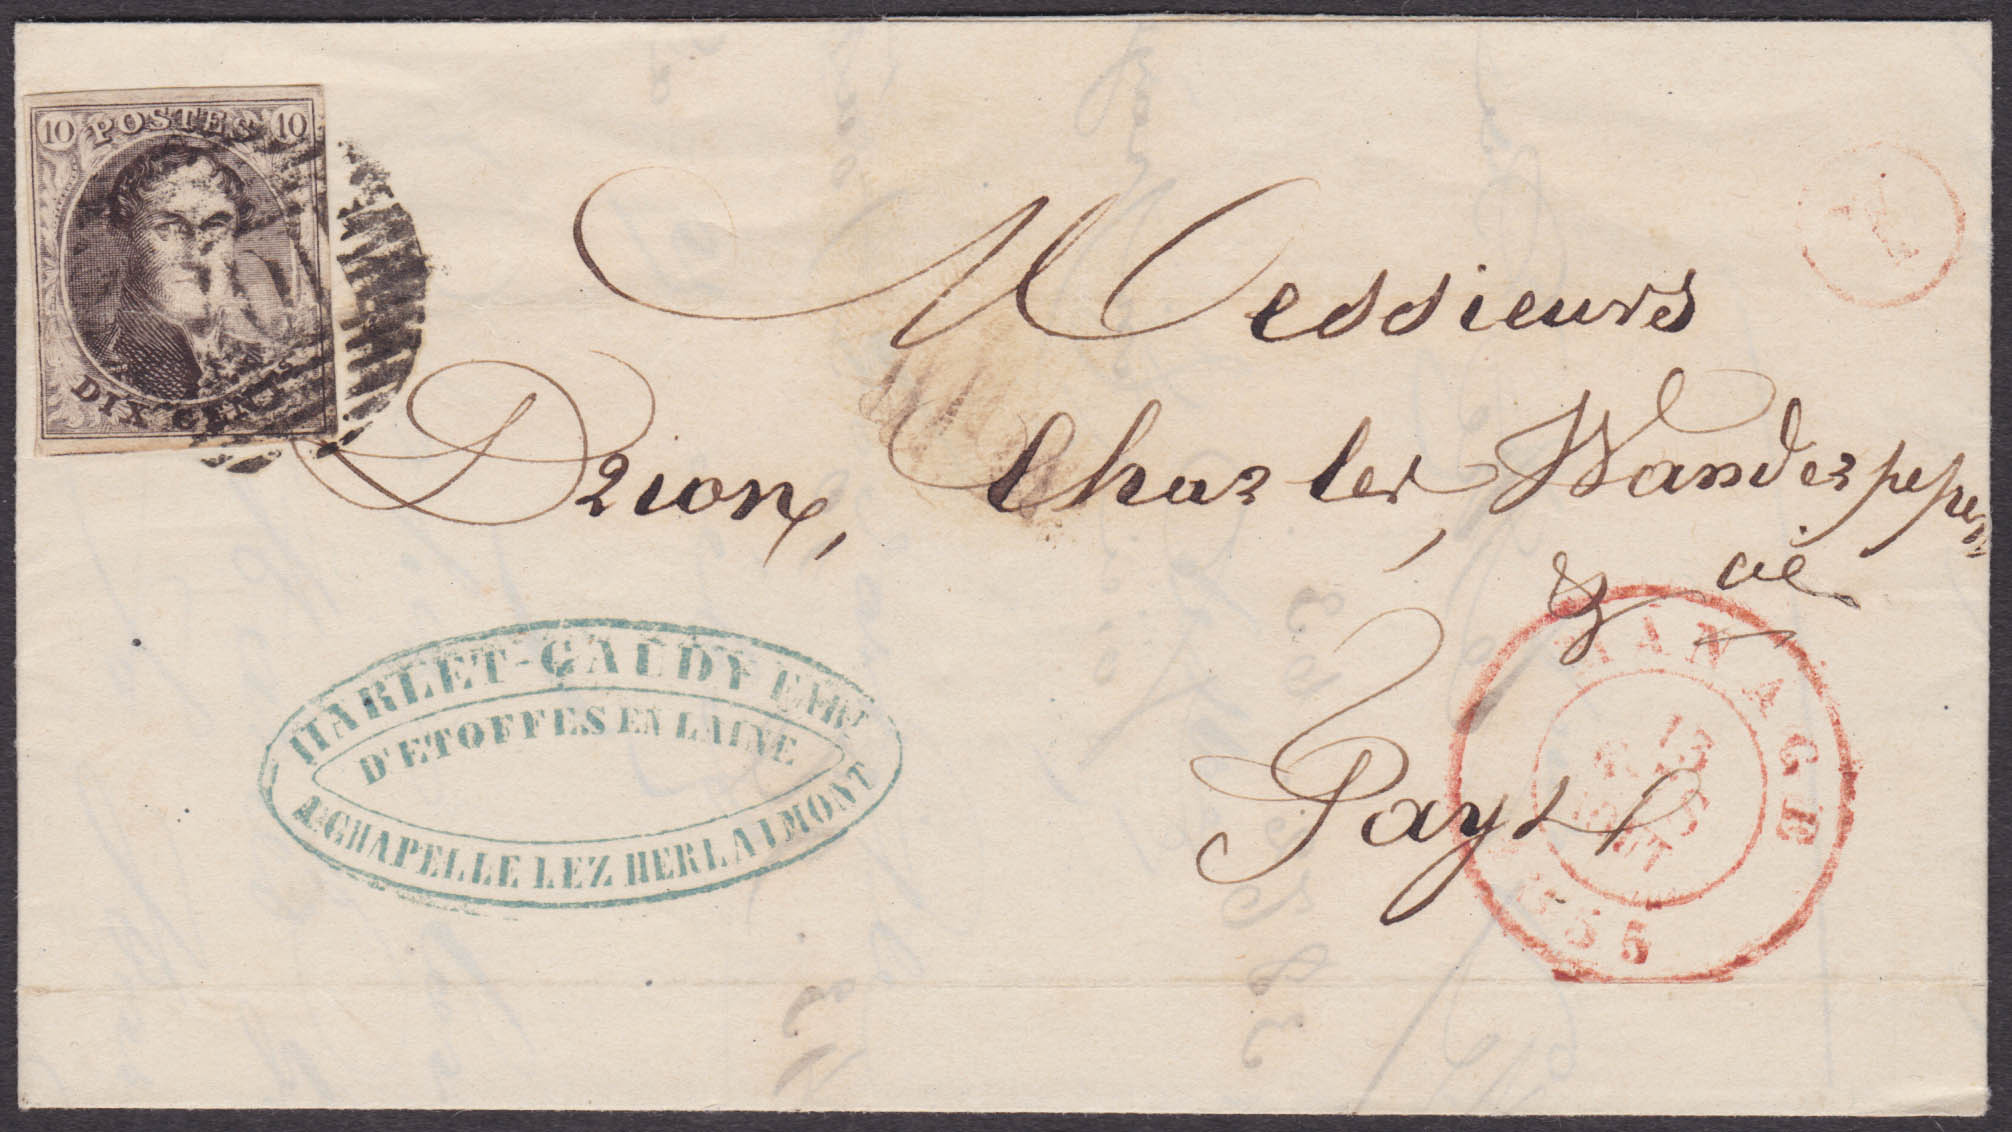 10 POSTES 10
DIX CENTS
Messieurs
Drion, Charles, Vanderpepen
& cie
Pays
HARLET-GAUDY FABT
D'ETOFFES EN LAINE
A CHAPELLE LEZ HERLAIMONT
MANAGE
13
AOUT
1855